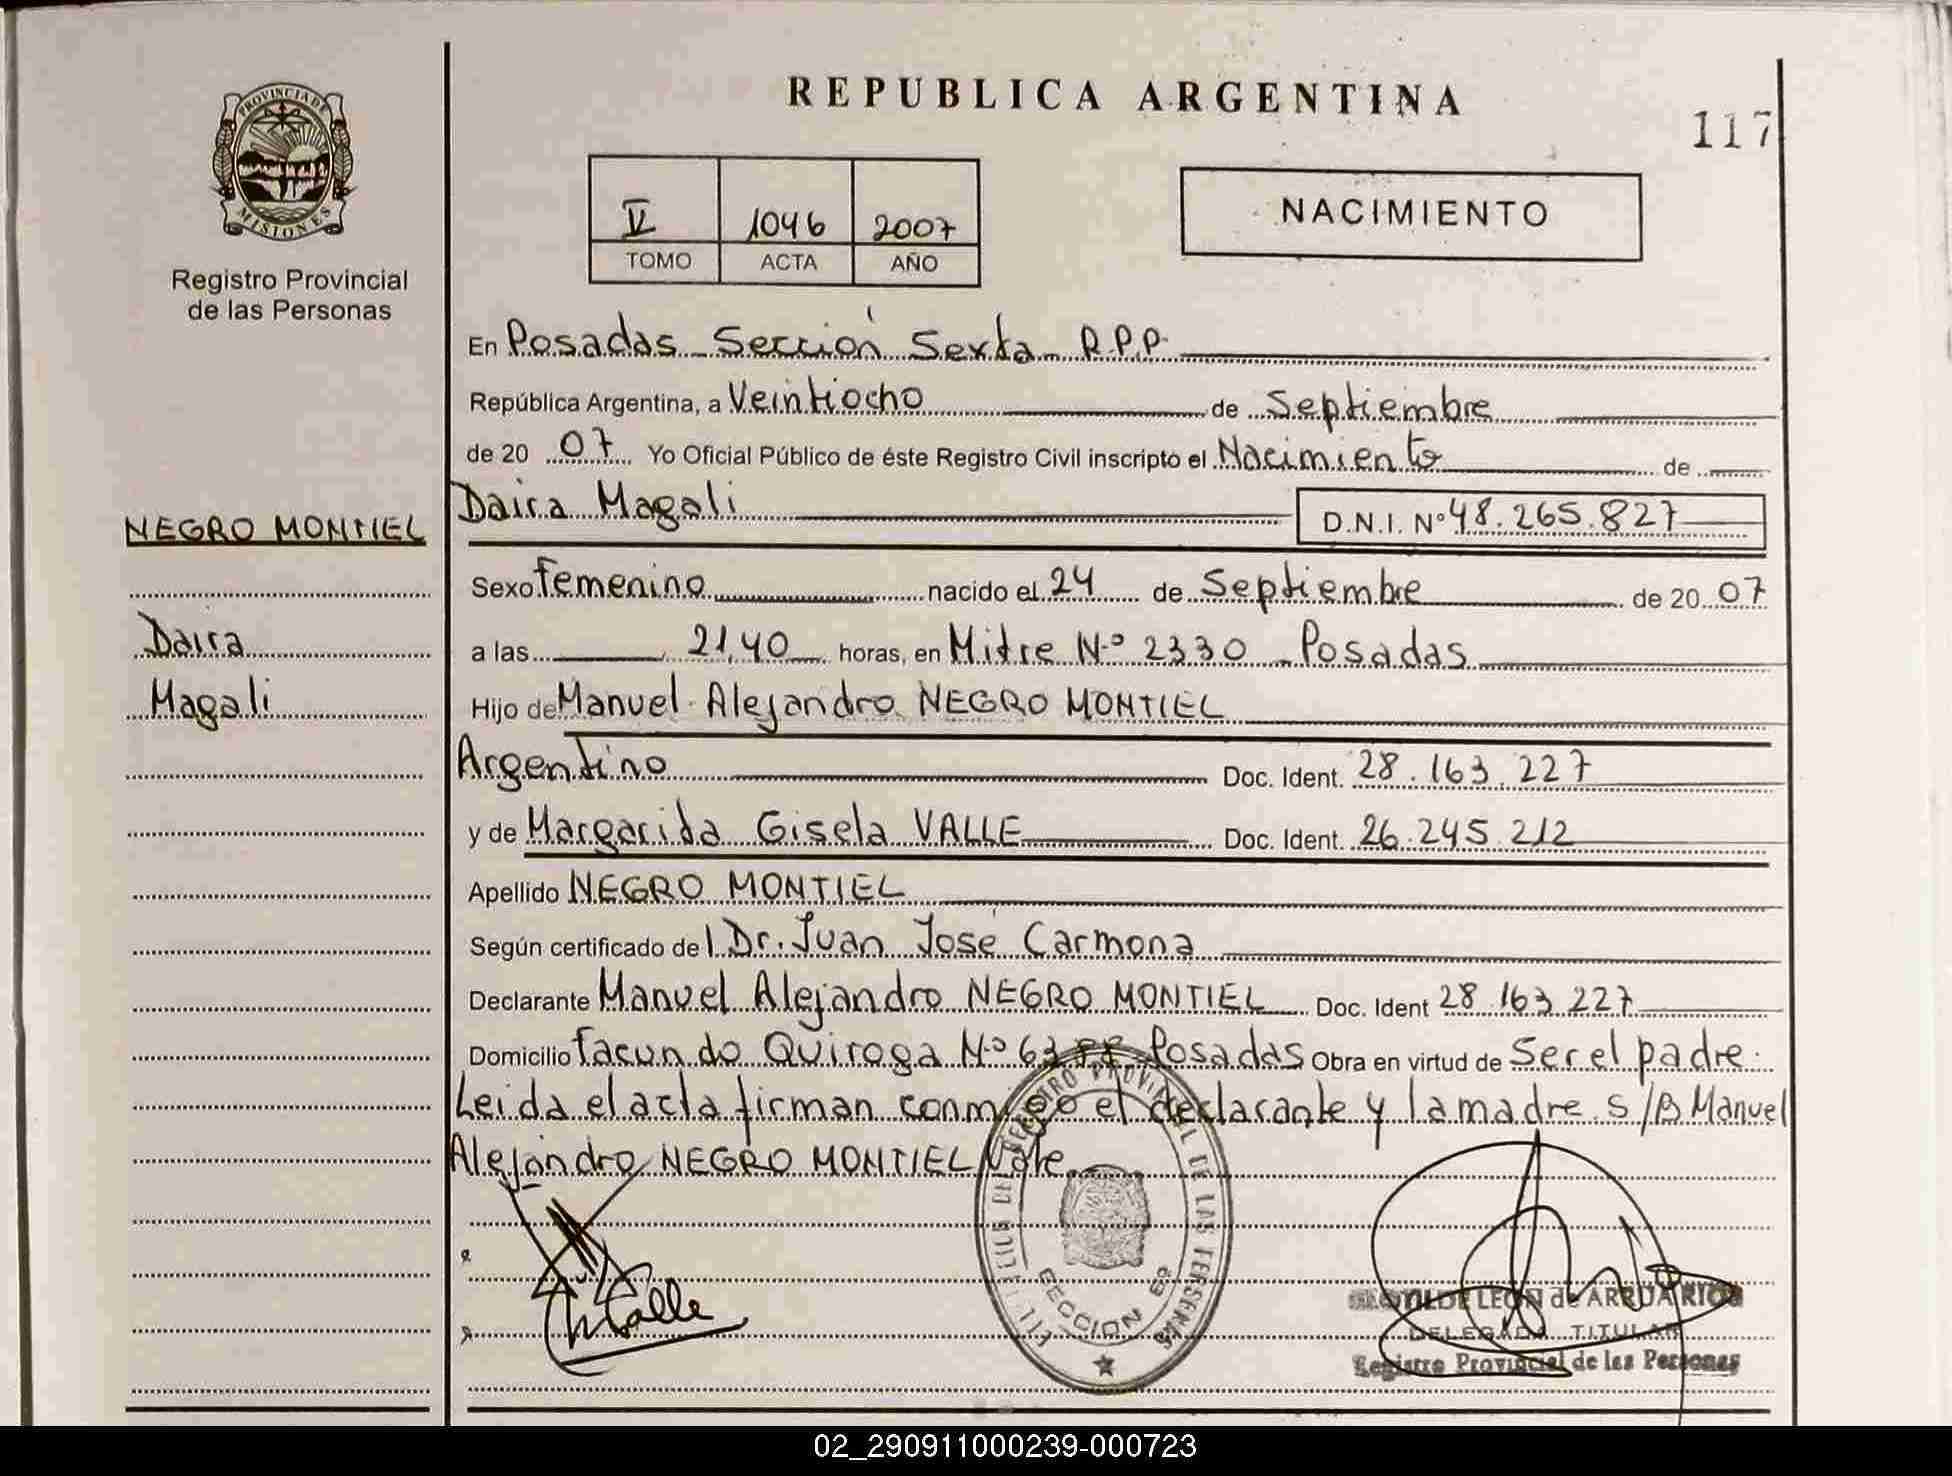 REPUBLICA ARGENTINA
117
PROVINCIA DE
MISIONES
Registro Provincial
de las Personas
V 1046 2007
TOMO ACTA AÑO
NACIMIENTO
En Posadas Sección Sexta R.P.P.
República Argentina, a Veintiocho de Septiembre
de 20 07 Yo Oficial Público de éste Registro Civil inscripto el Nacimiento de
Daira Magali D.N.I. Nº 48.265.827
NEGRO MONTIEL
Daira
Magali
Sexo femenino nacido el 24 de Septiembre de 20 07
a las 21,40 horas, en Mitre Nº 2330 Posadas
Hijo de Manuel Alejandro NEGRO MONTIEL
Argentino Doc. Ident. 28.163.227
y de Margarida Gisela VALLE Doc. Ident. 26.245.212
Apellido NEGRO MONTIEL
Según certificado del Dr. Juan José Carmona
Declarante Manuel Alejandro NEGRO MONTIEL Doc. Ident 28.163.227
Domicilio facundo Quiroga Nº Posadas Obra en virtud de Ser el padre.
Leida el acta firman conmigo el declarante y la madre. S/B Manuel
Alejandro NEGRO MONTIEL Vale.
REGISTRO PROVINCIAL DE LAS PERSONAS
SECCION 6ª
Valle
CLOTILDE LEON de ARRUA RIOS
DELEGADA TITULAR
Registro Provincial de las Personas
02_290911000239-000723